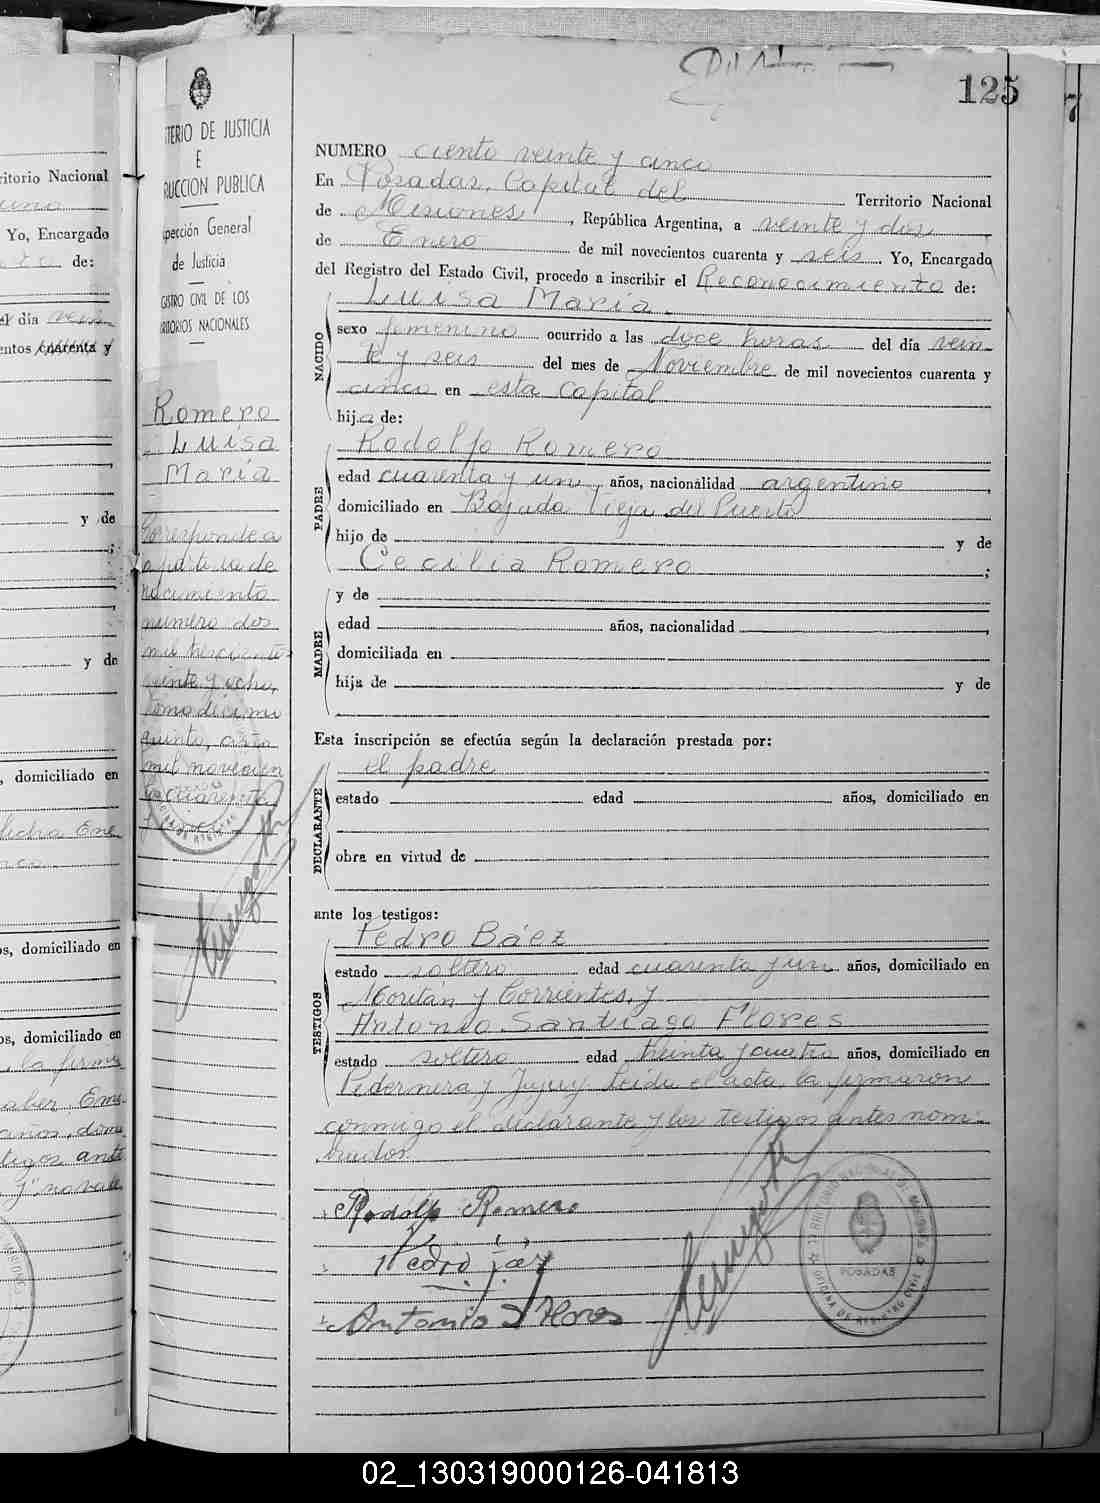 125
7
TERIO DE JUSTICIA
E
RUCCION PUBLICA
pección General
de Justicia
GISTRO CIVIL DE LOS
RITORIOS NACIONALES
Romero
Luisa
María
Corresponde a
nacimiento
numero dos
mil trescientos
veinte y ocho,
tomo décimo
quinto, año
mil novecien
tos cuarenta
NUMERO ciento veinte y cinco
En Posadas, Capital del Territorio Nacional
de Misiones, República Argentina, a veinte y dos
de Enero de mil novecientos cuarenta y seis. Yo, Encargado
del Registro del Estado Civil, procedo a inscribir el Reconocimiento de:
NACIDO
Luisa María.
sexo femenino ocurrido a las doce horas del día vein-
te y seis del mes de Noviembre de mil novecientos cuarenta y
cinco en esta Capital
hija de:
PADRE
Rodolfo Romero
edad cuarenta y un, años, nacionalidad argentino,
domiciliado en Bajada Vieja del Puerto
hijo de y de
Cecilia Romero;
MADRE
y de
edad años, nacionalidad,
domiciliada en
hija de y de
Esta inscripción se efectúa según la declaración prestada por:
DECLARANTE
el padre
estado edad años, domiciliado en
obra en virtud de
ante los testigos:
TESTIGOS
Pedro Báez
estado soltero edad cuarenta y un años, domiciliado en
y Corrientes, y
Antonio Santiago Flores
estado soltero edad treinta y cuatro años, domiciliado en
Pedernera y Jujuy. Leída el acta, la firmaron
conmigo el declarante y los testigos antes nom-
brados.
Rodolfo Romero
Pedro
Antonio S Flores
TERRITORIO NACIONAL DE MISIONES
POSADAS
OFICINA DE REGISTRO CIVIL
ritorio Nacional
Yo, Encargado
de:
el día vein
entos cuarenta y
y de
;
y de
, domiciliado en
os, domiciliado en
os, domiciliado en
la firma
02_130319000126-041813